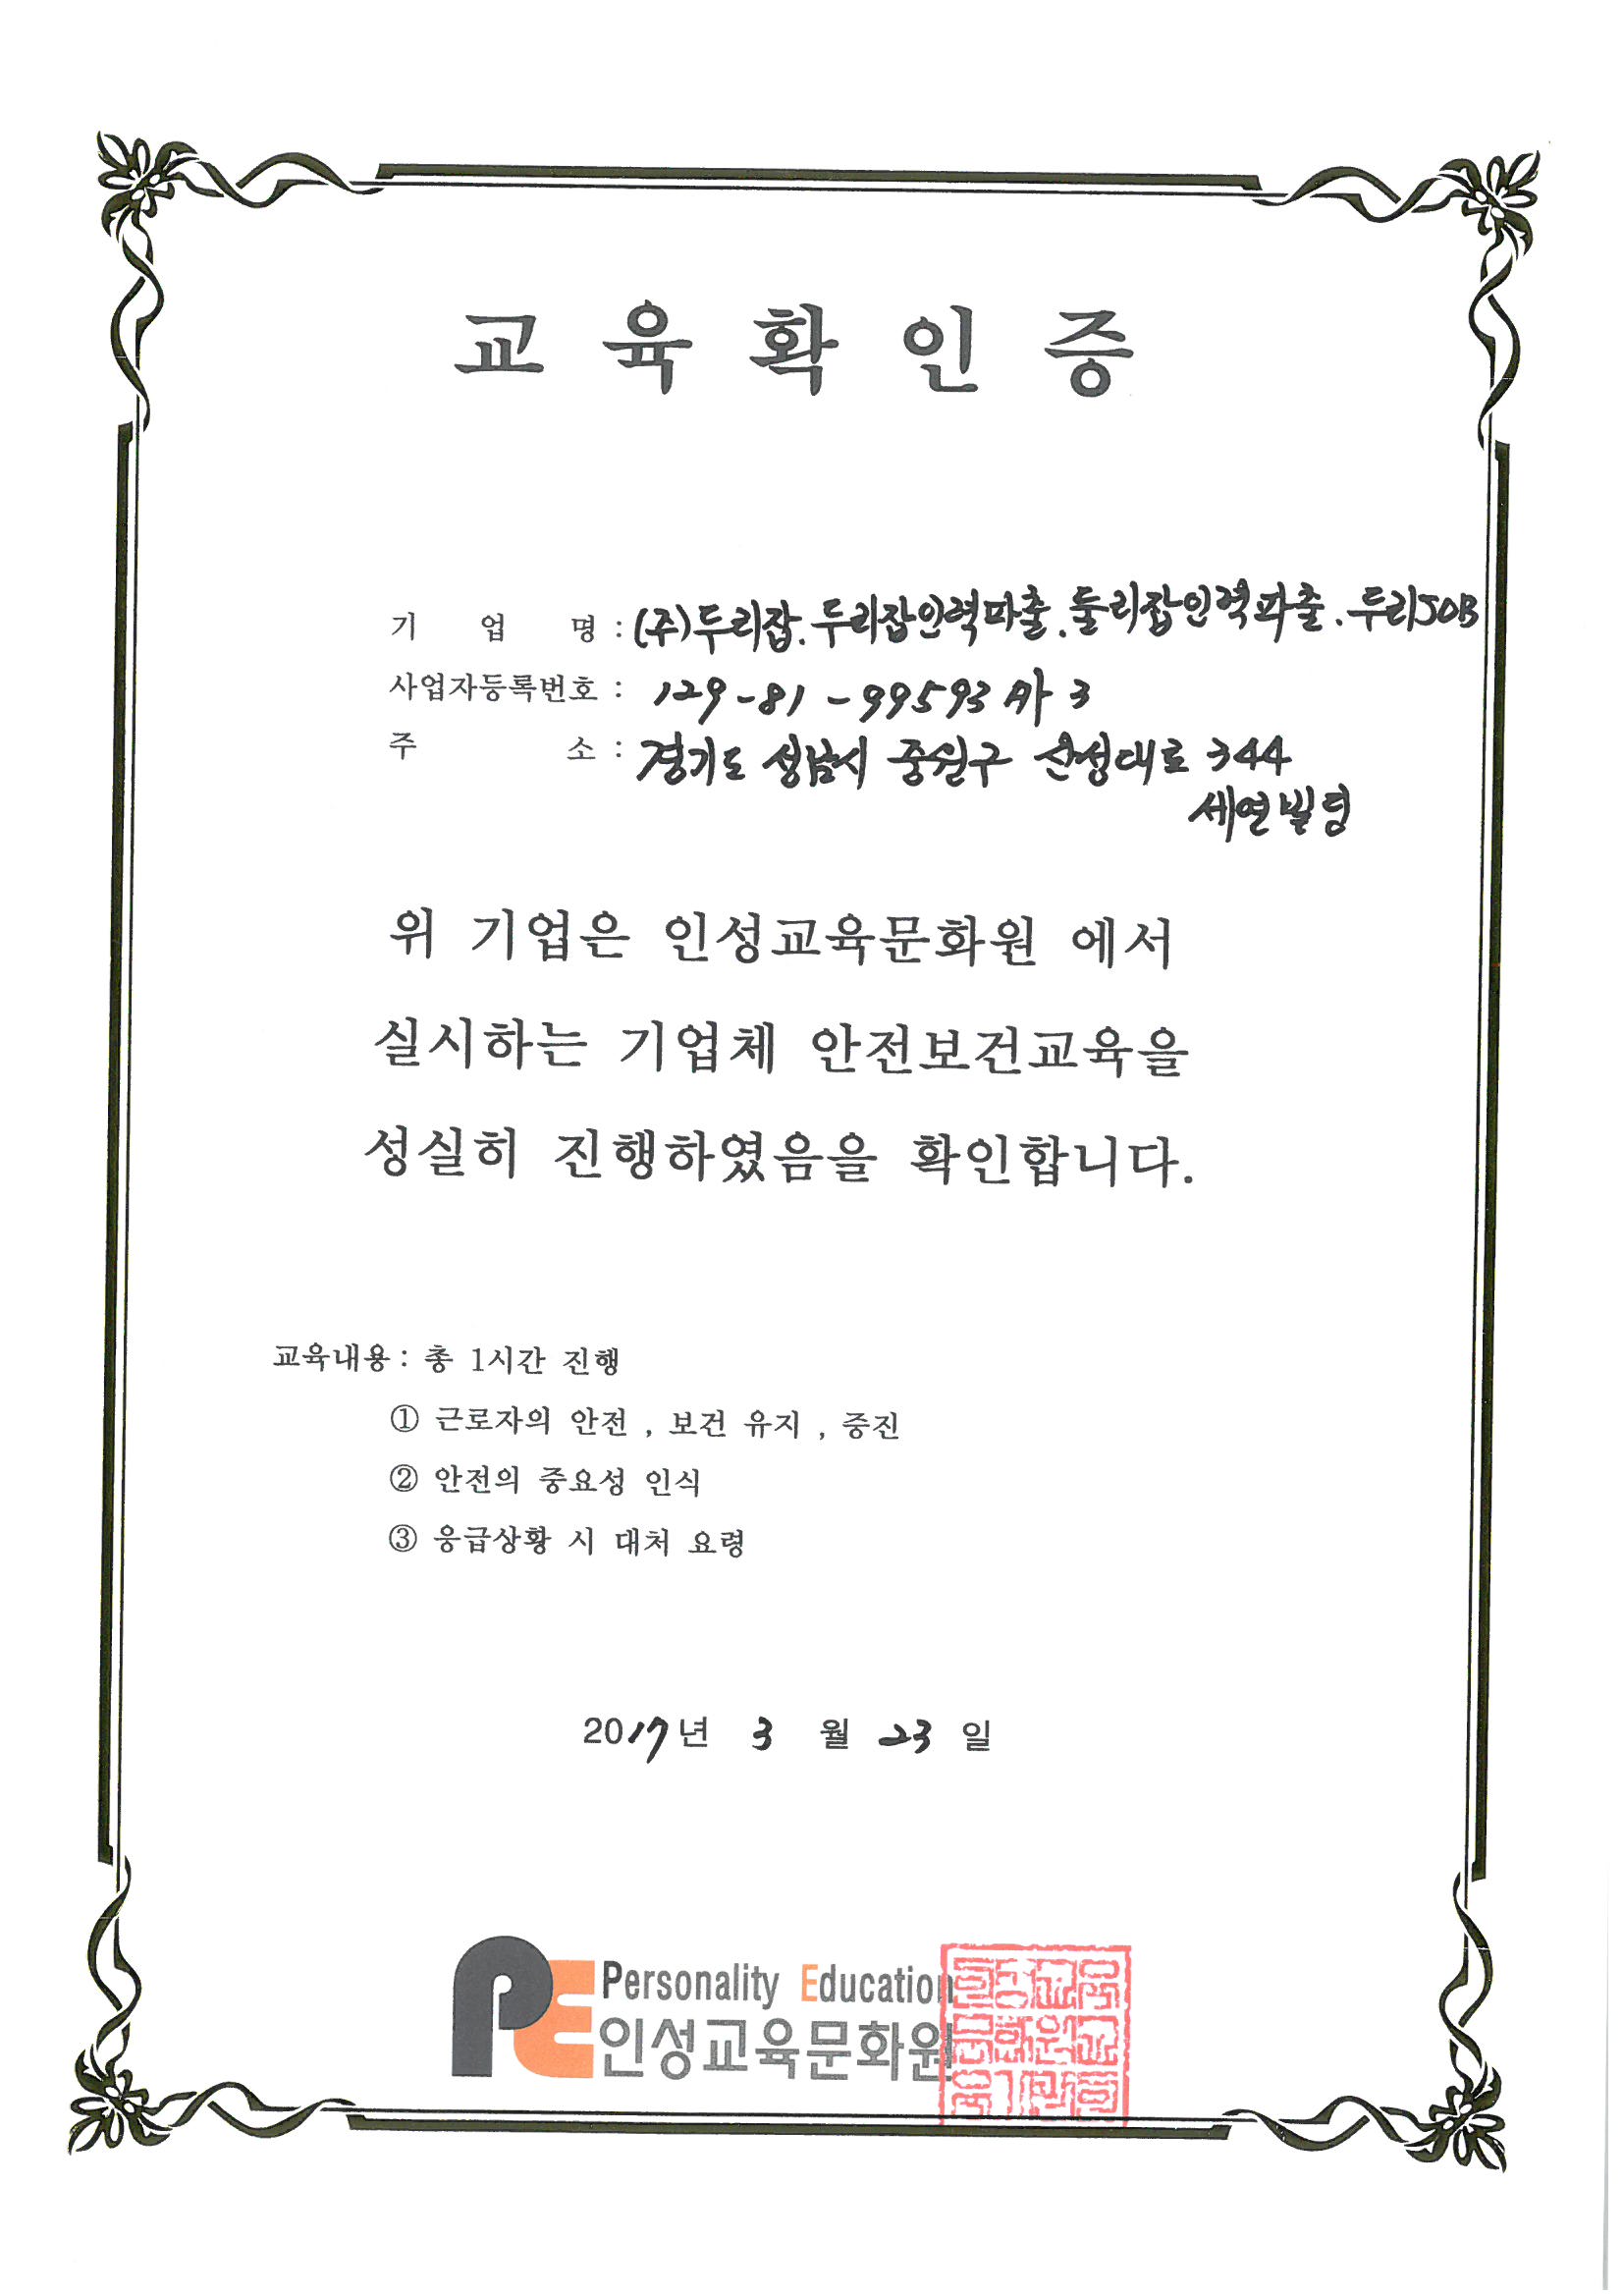 교 육 확 인 증
기 업 명 : (주)두리잡. 두리잡인력파출. 둘리잡인력파출. 두리JOB
사업자등록번호 : 129-81-99593
주 소 : 경기도 성남시 중원구 산성대로 344
세연빌딩
위 기업은 인성교육문화원 에서
실시하는 기업체 안전보건교육을
성실히 진행하였음을 확인합니다.
교육내용 : 총 1시간 진행
① 근로자의 안전 , 보건 유지 , 증진
② 안전의 중요성 인식
③ 응급상황 시 대처 요령
2017년 3 월 23 일
PE Personality Education
인성교육문화원